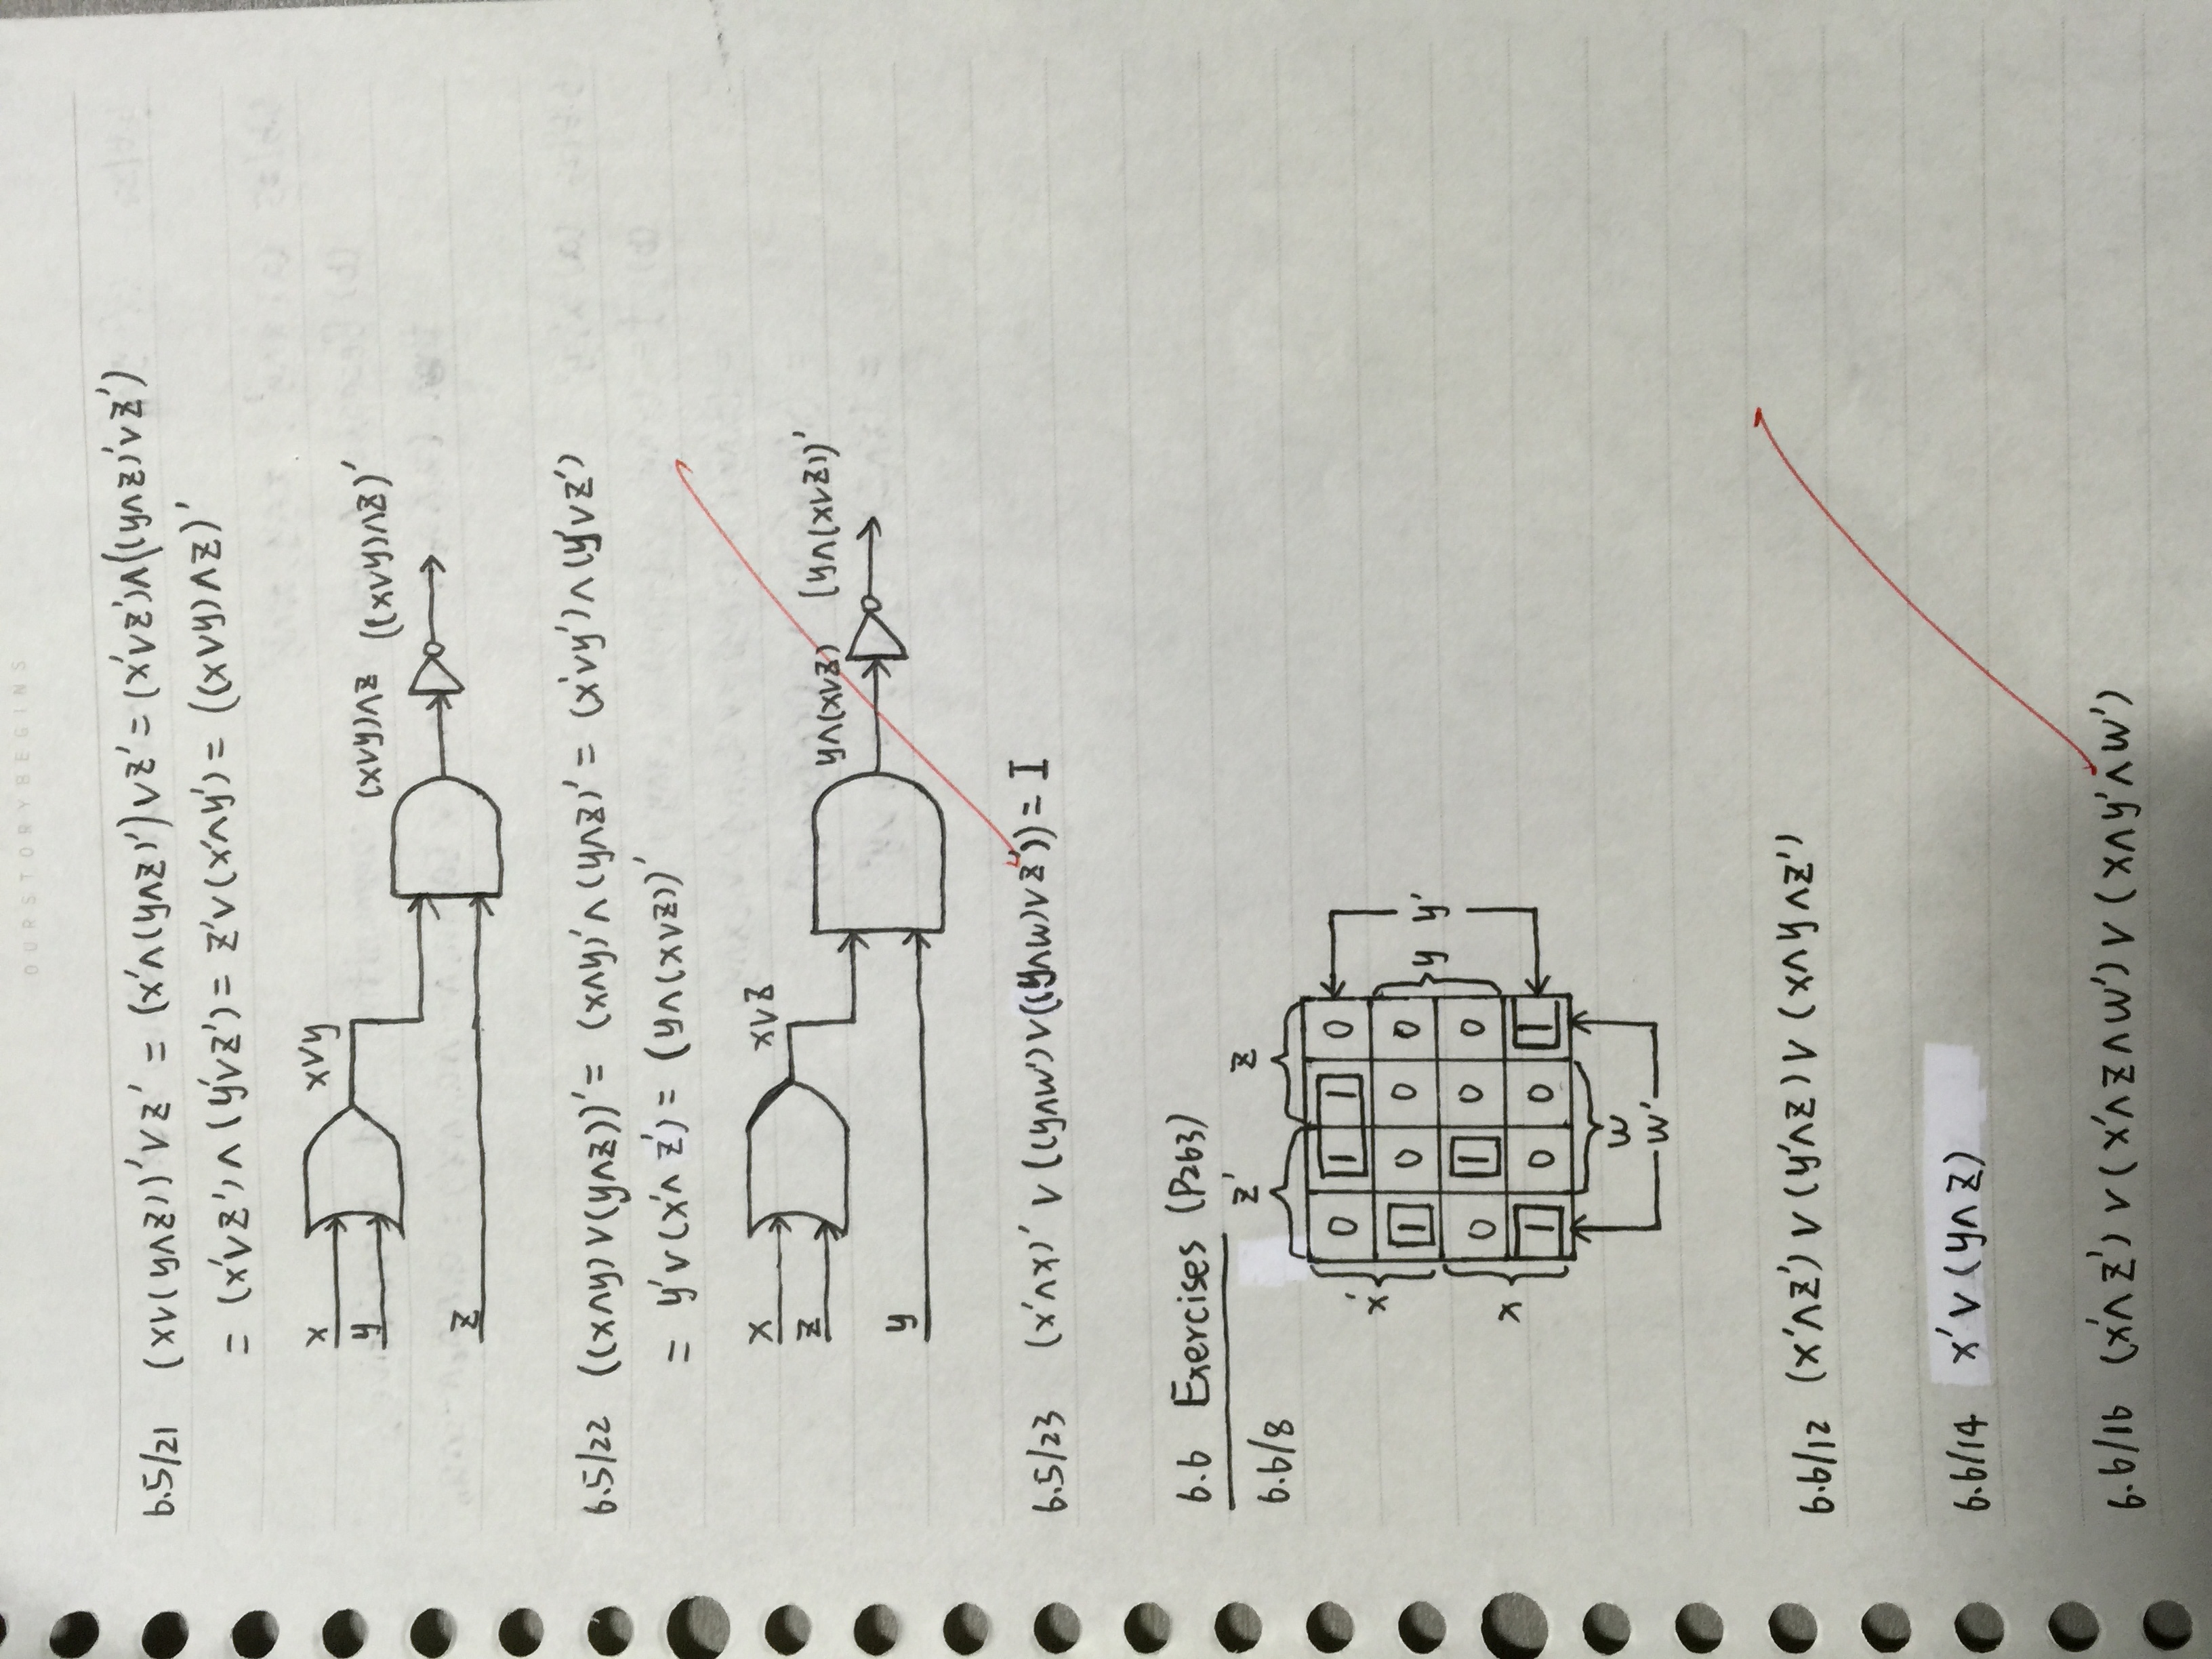 OURSTORYBEGINS
6.5/21 (x∨(y∧z))'∨z' = (x'∧(y∧z)')∨z' = (x'∨z')∧((y∧z)'∨z')
= (x'∨z')∧(y'∨z') = z'∨(x'∧y') = ((x∨y)∧z)'
x
y
x∨y
z
(x∨y)∧z
((x∨y)∧z)'
6.5/22 ((x∧y)∨(y∧z))' = (x∧y)'∧(y∧z)' = (x'∨y')∧(y'∨z')
= y'∨(x'∧z') = (y∧(x∨z))'
x
z
x∨z
y
y∧(x∨z)
(y∧(x∨z))'
6.5/23 (x'∧x)' ∨ ((y∧w')∨((y∧w)∨z')) = I
6.6 Exercises (P263)
6.6/8
z' z
x'
0 1 1 0
1 0 0 0
y y'
x
0 1 0 0
1 0 0 1
w
w'
6.6/12 (x'∧z')∨(y'∧z)∨(x∧y∧z')
6.6/14 x'∨(y∧z)
6.6/16 (x'∧z')∨(x'∧z∧w')∨(x∧y'∧w')